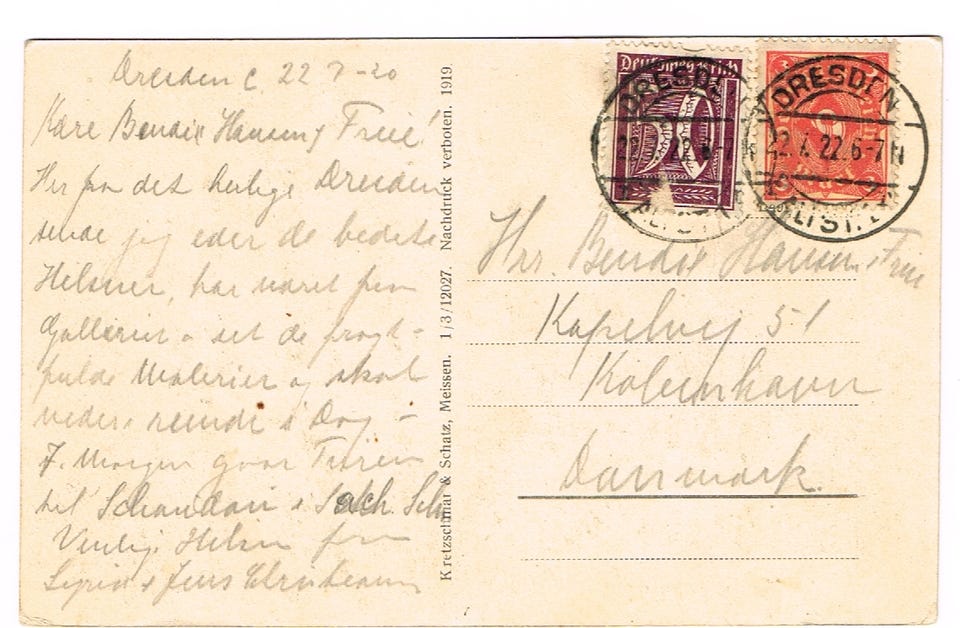 Dresden C. 22 7-20
Kære Bendix Hansen & Frue!
Her fra det herlige Dresden
sende jeg eder de bedste
Hilsner, har været paa
Galleriet o set de pragt-
fulde Malerier og skal
videre rundt i Dag -
I Morgen gaar Turen
til Schandau i Säch. Sch
Venlig Hilsen fra
Jens
Kretzschmar & Schatz, Meissen. 1/3/12027. Nachdruck verboten. 1919.
Deutsches Reich
DRESDEN
ALTST.
DRESDEN
22.4.22.6-7N
ALTST.
Hrr. Bendix Hansen & Frue
Kapelvej 51
København
Danmark.